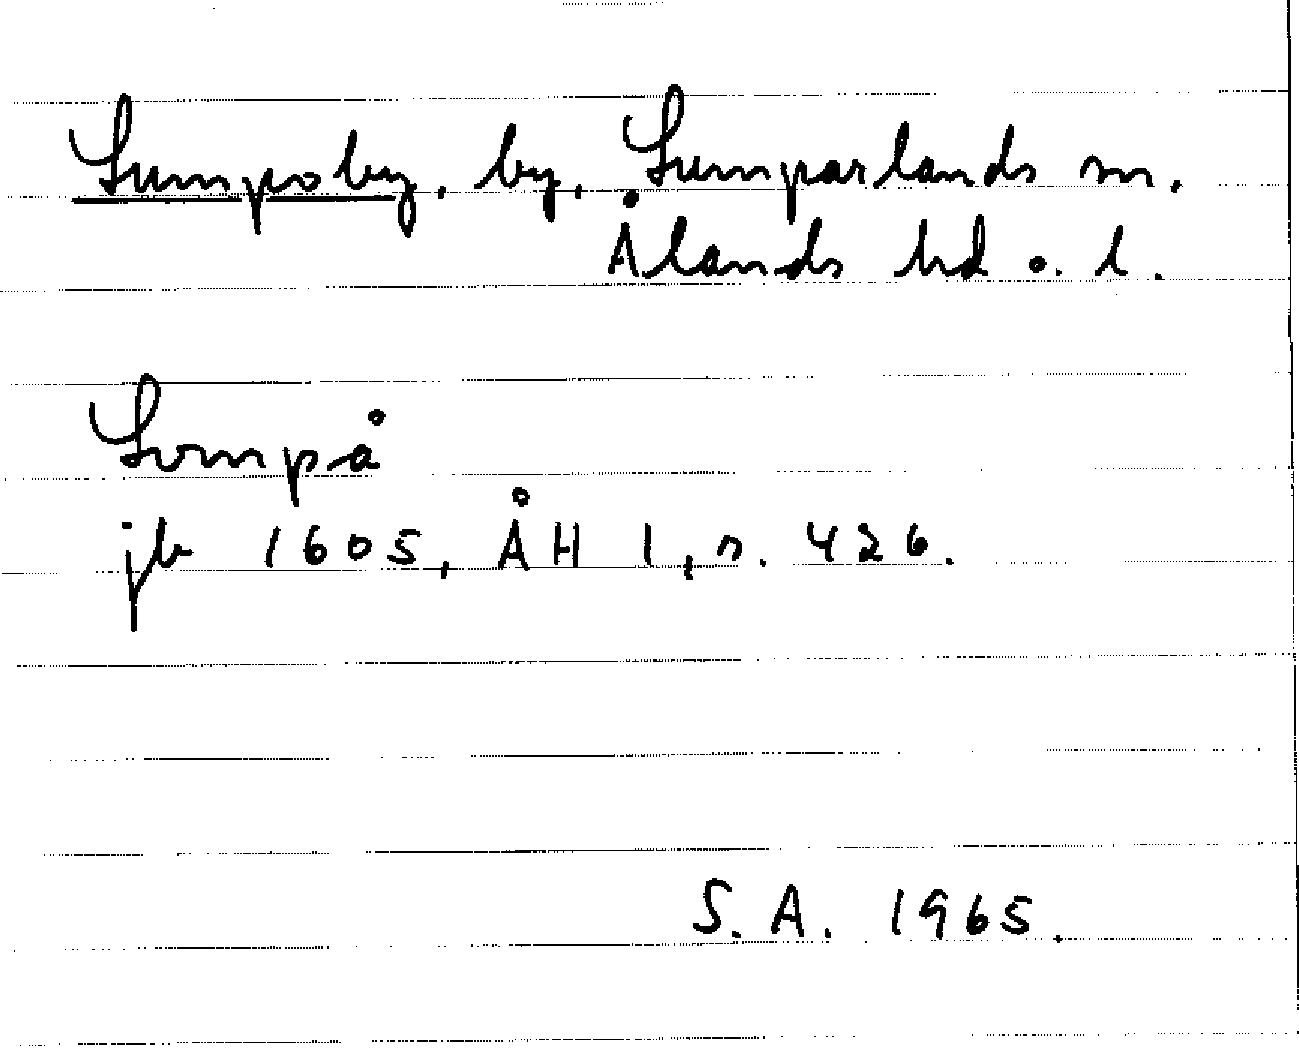 Lumpoby, by, Lumparlands sn.
Ålands hd o. l.
Lompå
jb 1605, ÅH 1, s. 426.
S. A. 1965.